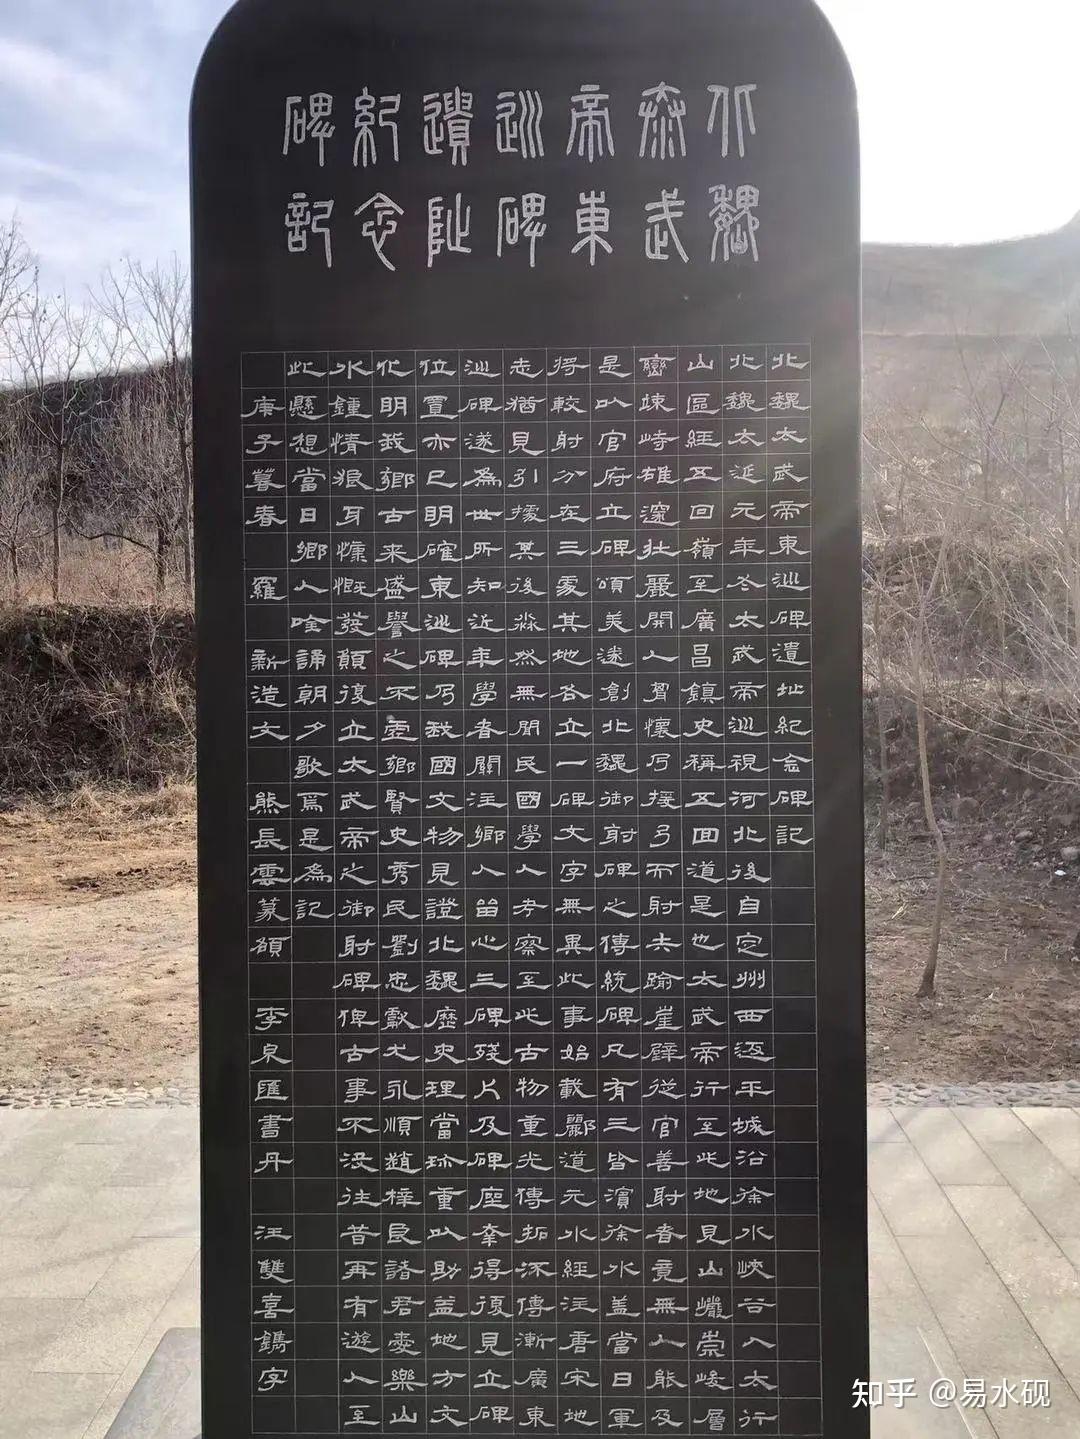 北魏
泰武
帝東
巡碑
遺址
紀念
碑記
北魏太武帝東巡碑遺址紀念碑記
北魏太延元年冬太武帝巡視河北後自定州西返平城沿徐水峽谷入太行
山區經五回嶺至廣昌鎮史稱五回道是也太武帝行至此地見山巖崇峻層
巒竦峙雄深壯麗開人胷懷乃援弓而射矢踰崖壁從官善射者竟無人能及
是以官府立碑頌美遂創北魏御射碑之傳統碑凡有三皆濱徐水蓋當日軍
將較射分在三處其地各立一碑文字無異此事始載酈道元水經注唐宋地
志猶見引據其後淼然無聞民國學人考察至此古物重光傳拓流傳漸廣東
巡碑遂為世所知近年學者關注鄉人留心三碑殘片及碑座幸得復見立碑
位置亦已明確東巡碑乃我國文物見證北魏歷史理當珍重以助益地方文
化明我鄉古來盛譽之不虛鄉賢史秀民劉忠獻尤永順趙梓良諸君愛樂山
水鍾情狼牙慷慨發願復立太武帝之御射碑俾古事不沒往昔再有遊人至
此懸想當日鄉人唫誦朝夕歌焉是為記
庚子暮春 羅 新造文 熊長雲篆額 李泉匯書丹 汪雙喜鐫字
知乎 @易水砚